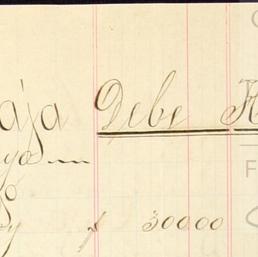 aja Debe H
yo
o
y $ 30000